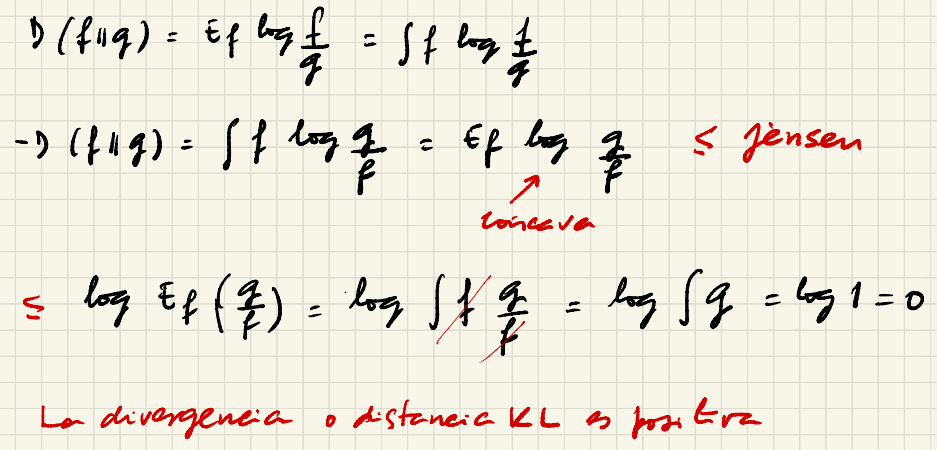 D (f||g) = Ef log f/g = ∫ f log f/g
-D (f||g) = ∫ f log g/f = Ef log g/f ≤ Jensen
concava
≤ log Ef (g/f) = log ∫ f g/f = log ∫ g = log 1 = 0
La divergencia o distancia KL es positiva